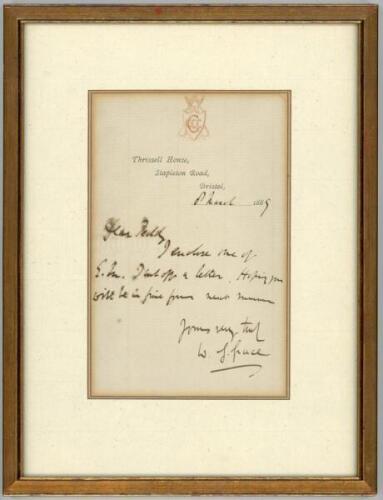 GCC
Thrissell House,
Stapleton Road,
Bristol,
8 March 1889
Dear Peddy
I enclose one of
E. M. a letter. Hoping you
will be in fine form next summer
Yours very truly
W. G. Grace